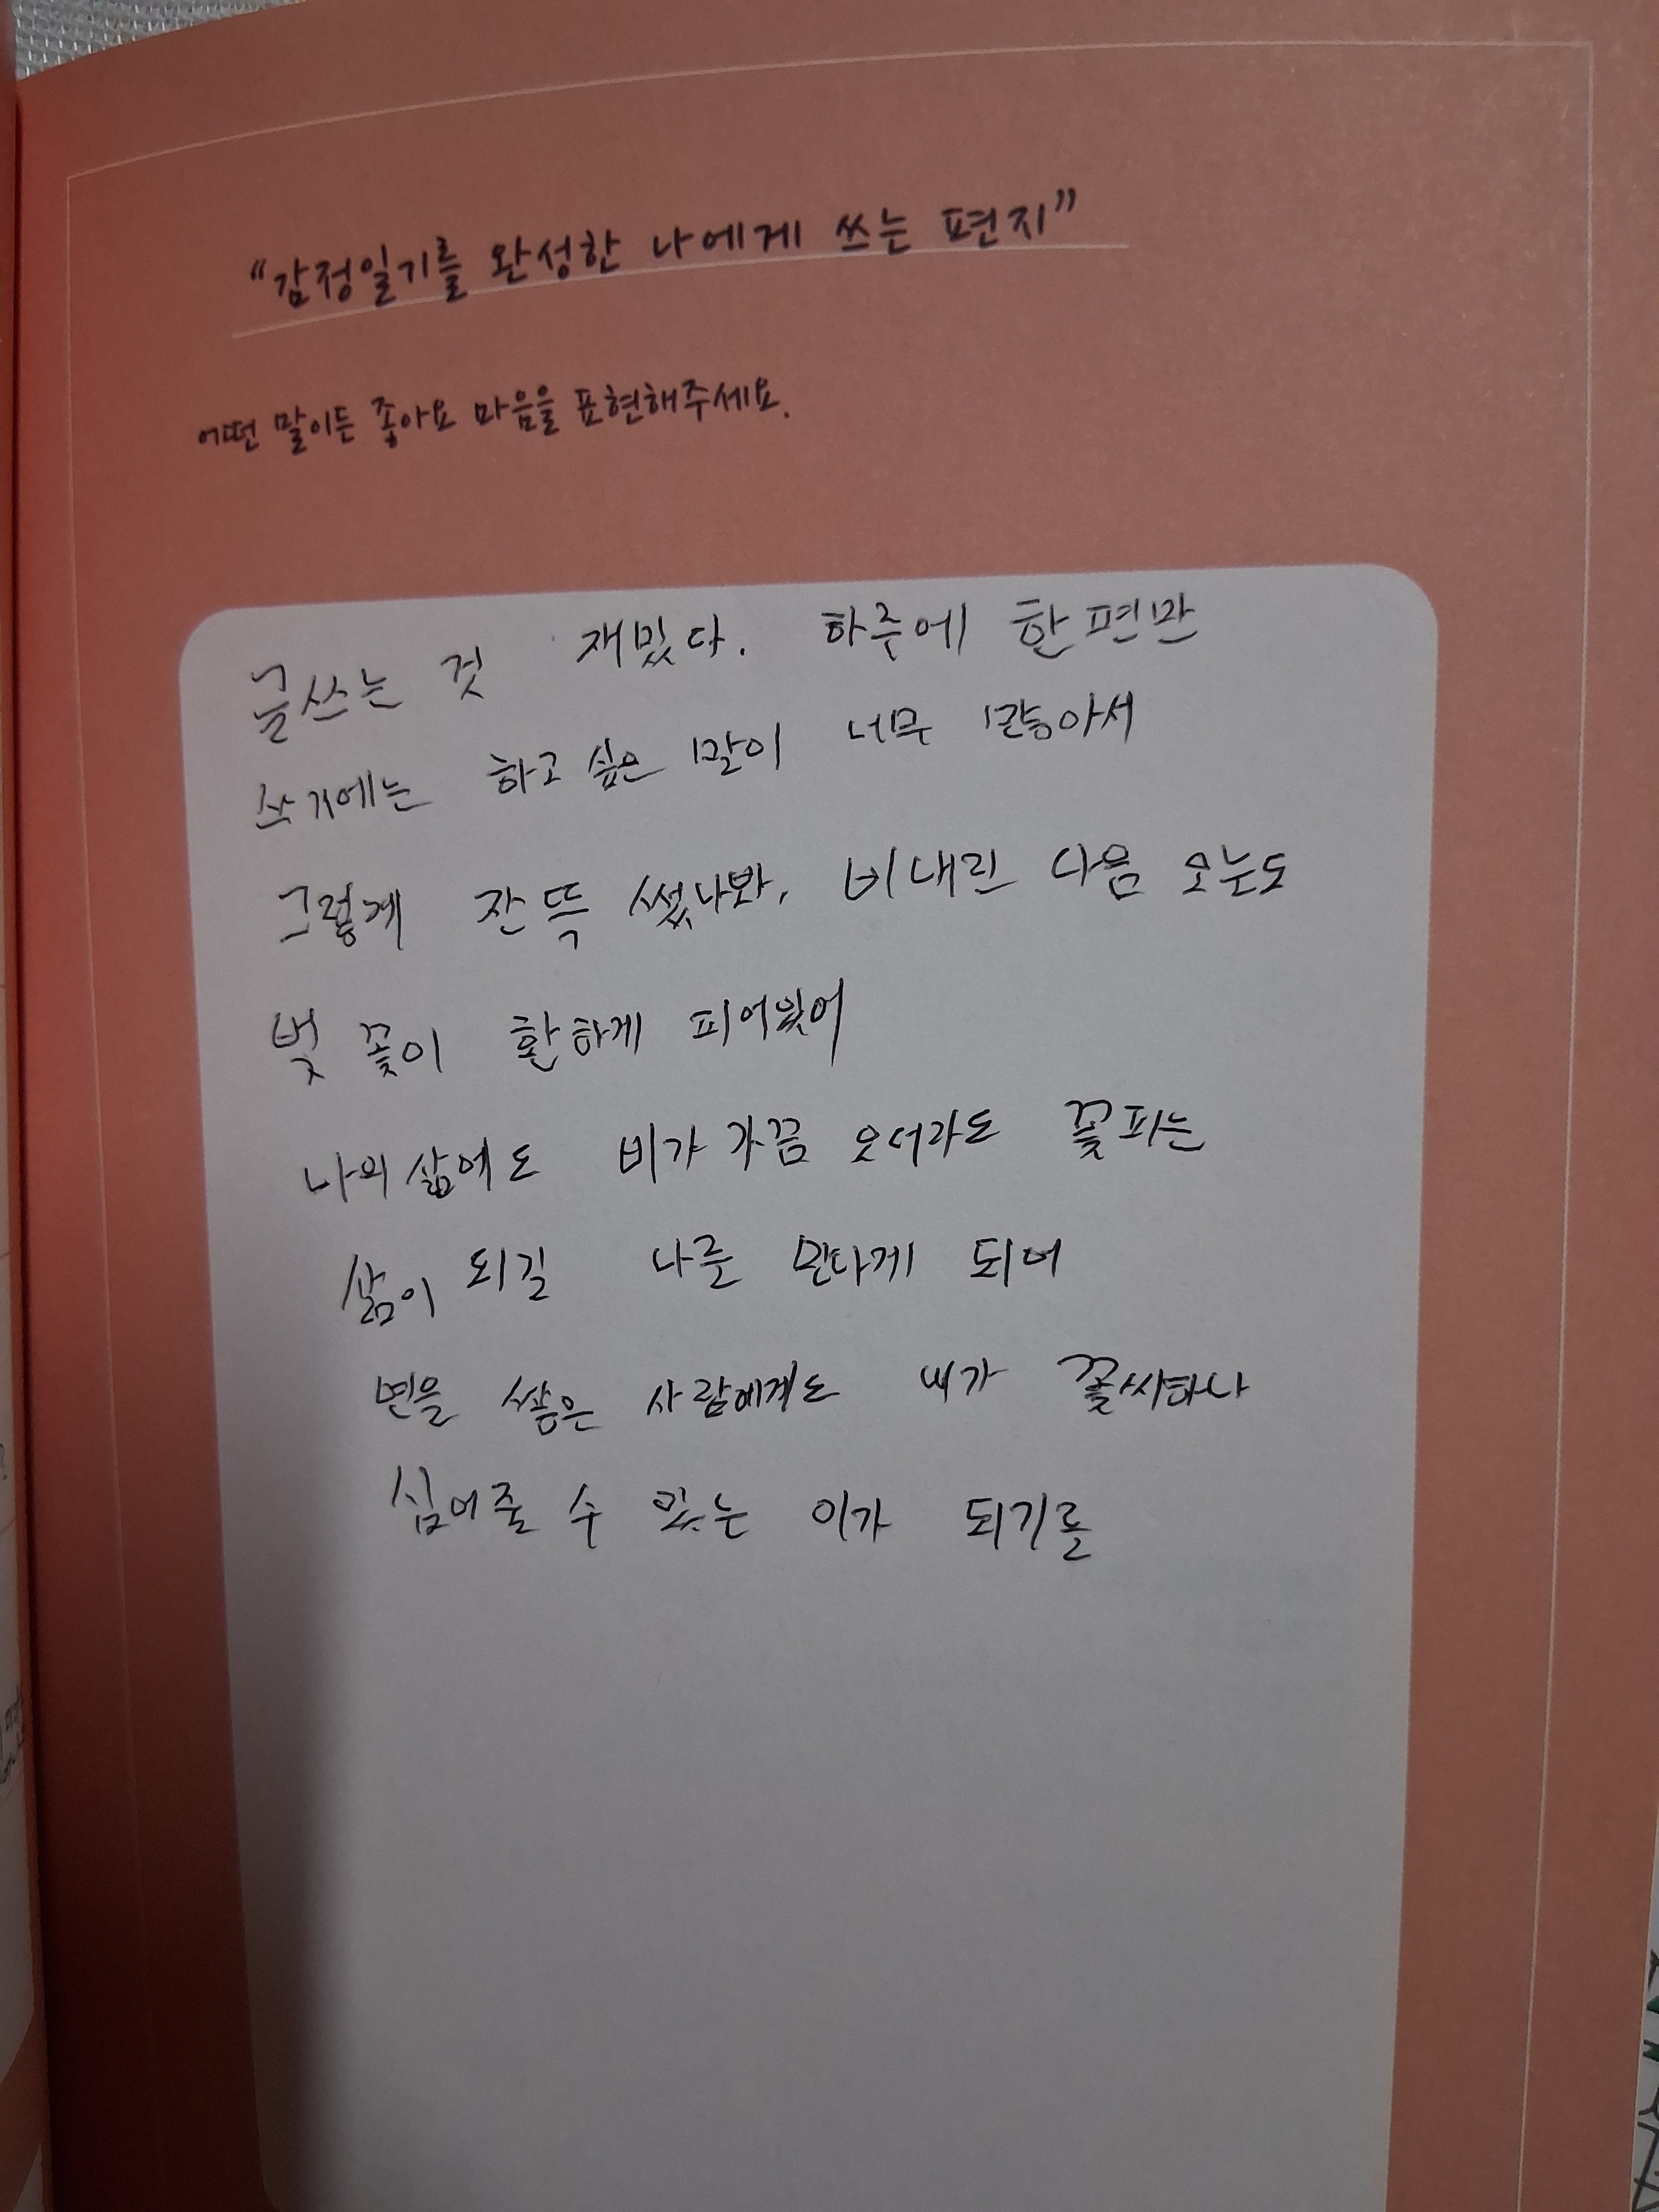 “감정일기를 완성한 나에게 쓰는 편지”
어떤 말이든 좋아요 마음을 표현해주세요.
글쓰는 것 재밌다. 하루에 한 편만
쓰기에는 하고 싶은 말이 너무 많아서
그렇게 잔뜩 썼나봐. 비내린 다음 오늘도
벚꽃이 환하게 피어있어
나의 삶에도 비가 가끔 오더라도 꽃피는
삶이 되길 나를 만나게 되어
연을 쌓은 사람에게도 내가 꽃씨하나
심어줄 수 있는 이가 되기를